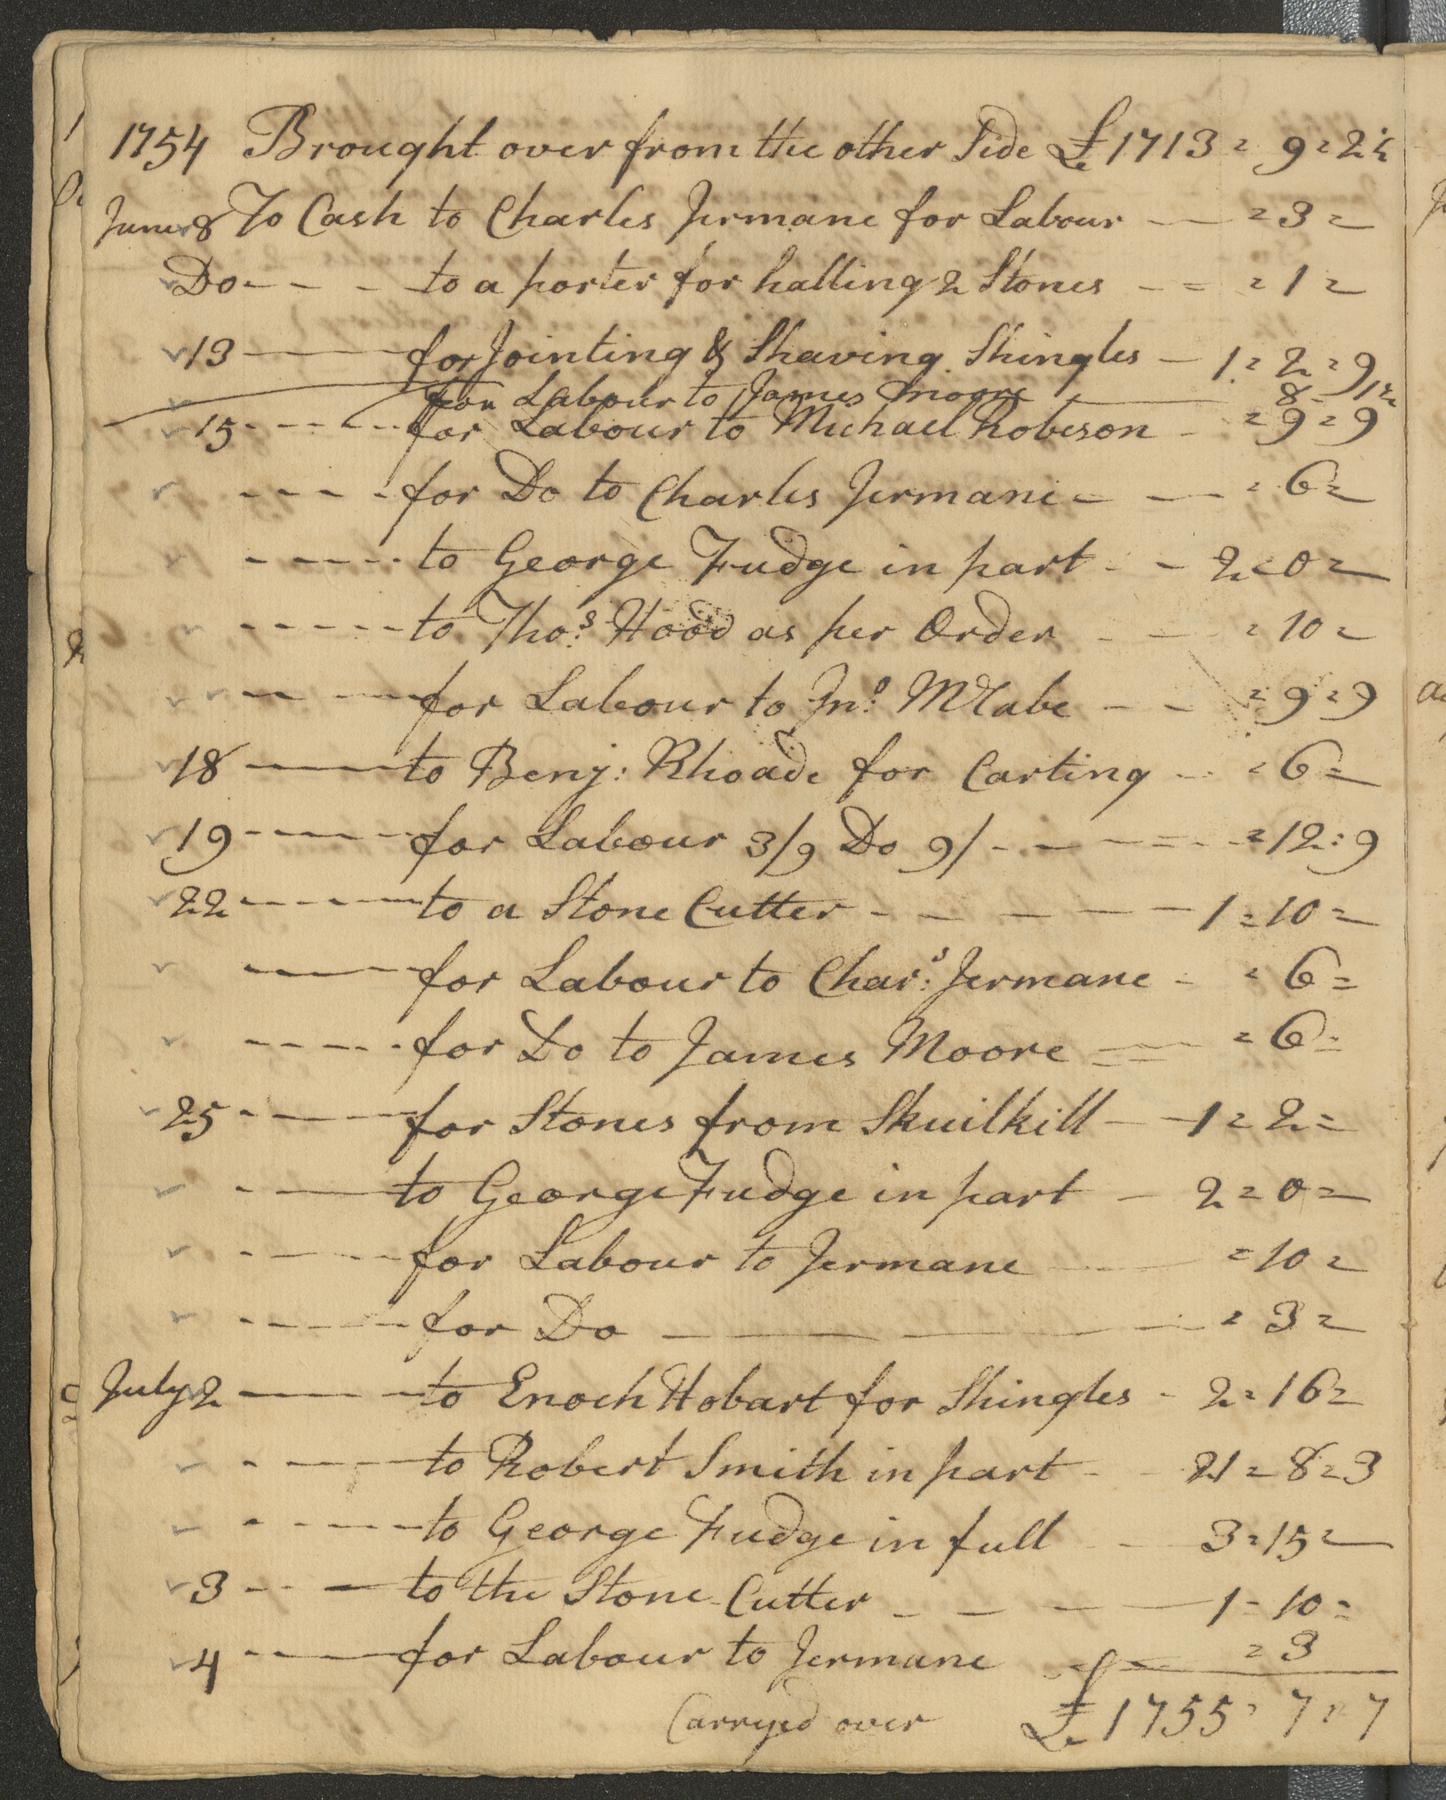 1754 Brought over from the other Side £1713 = 9 = 2½
June 8 To Cash to Charles Jermane for Labour — = 3 =
Do - - - to a porter for halling 2 Stones - = = 1 =
13 — for Jointing & Shaving Shingles — 1 = 2 = 9
for Labour to James Moore — 8
15 - - - for Labour to Michael Robeson - = 9 = 9
- - - - for Do to Charles Jermane - — = 6 =
- - - - to George Fudge in part - - 2 = 0 =
- - - - to Thos. Hood as per Order - - = 10 =
- - for Labour to Jno. McCabe - - = 9 = 9
18 — to Benj: Rhoade for Carting - = 6 =
19 - — for Labour 3/9 Do 9/ - - - = 12 : 9
22 - - - to a Stone Cutter - - - — 1 = 10 =
— for Labour to Chars. Jermane - = 6 =
- - - - for Do to James Moore = = 6 =
25 - — for Stones from Skuilkill — 1 = 2 =
- — to George Fudge in part - 2 = 0 =
- — for Labour to Jermane — = 10 =
- - - - for Do — = 3 =
July 2 — to Enoch Hobart for Shingles - 2 = 16 =
- — to Robert Smith in part - 21 = 8 = 3
- - - - to George Fudge in full - 3 = 15 =
3 - - — to the Stone Cutter - - — 1 - 10 =
4 - — for Labour to Jermane — = 3
Carryed over £1755 = 7 = 7